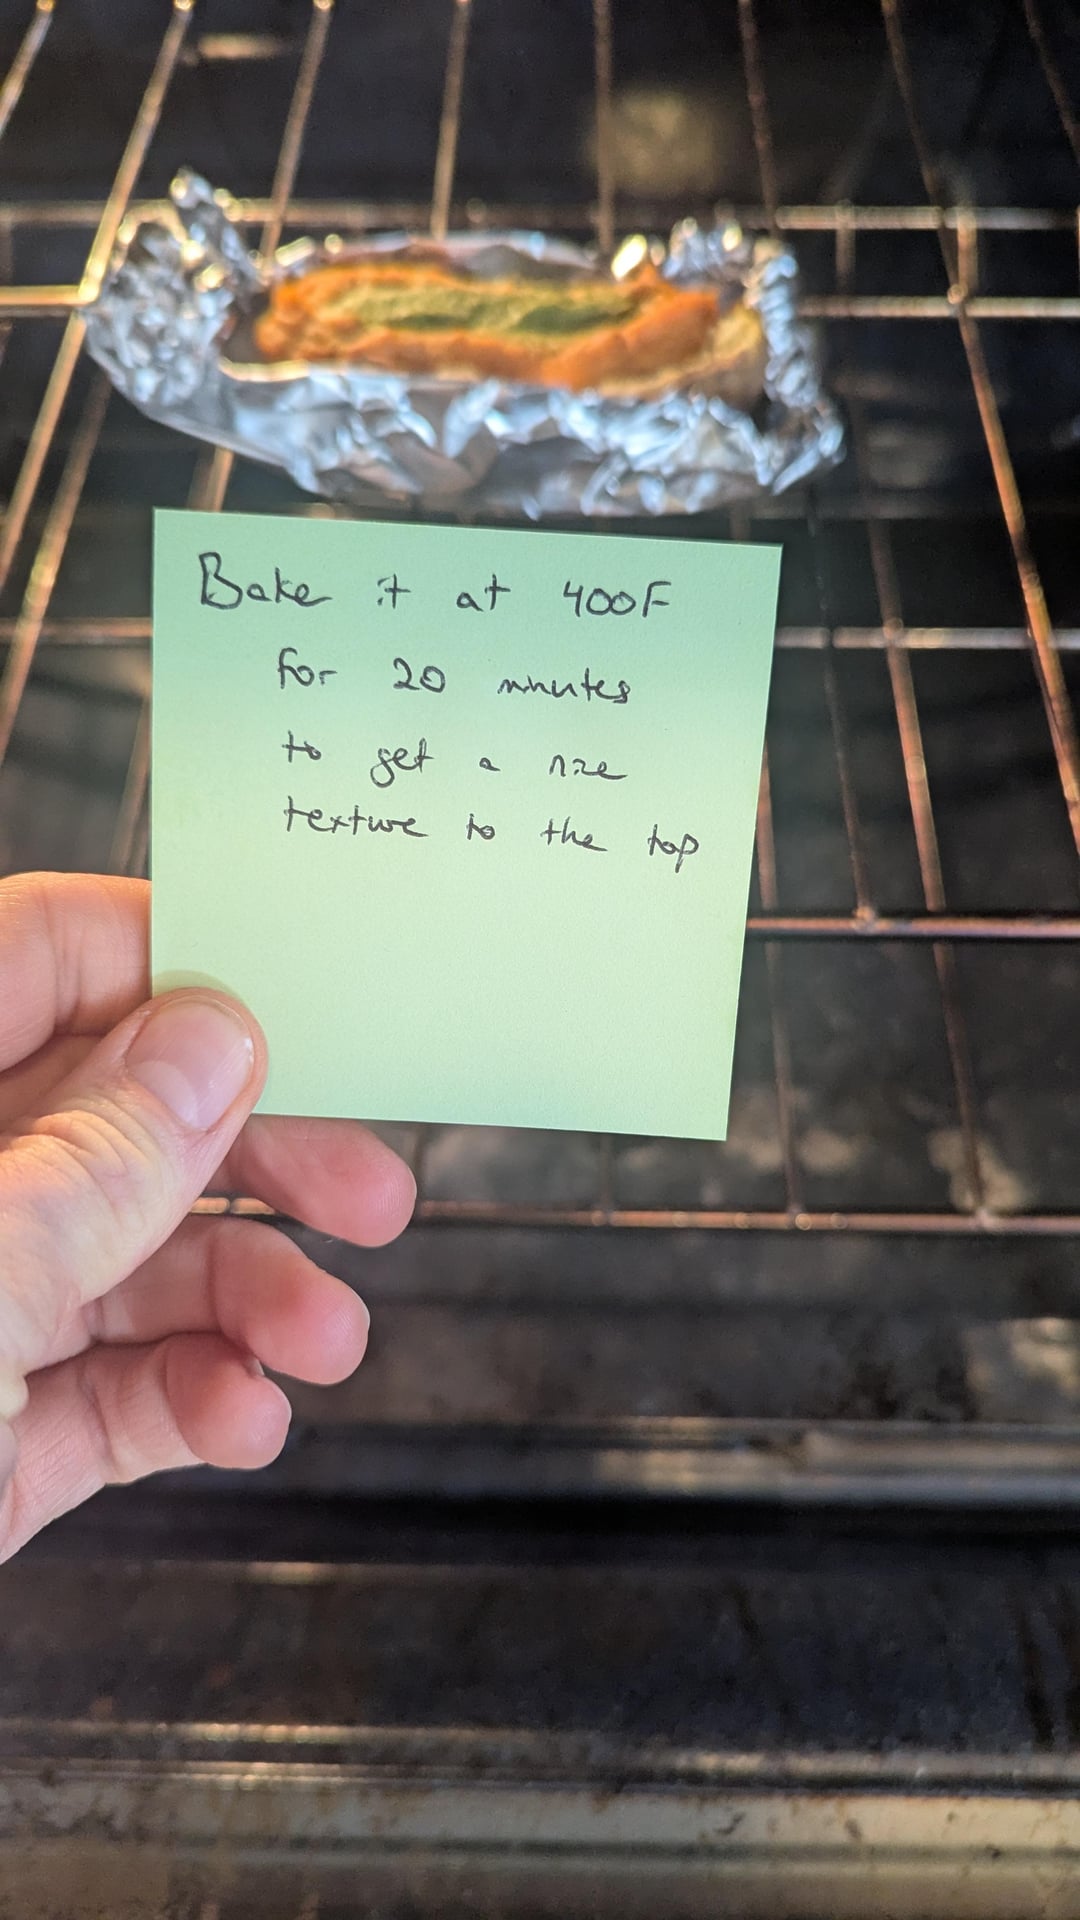 Bake it at 400F
for 20 minutes
to get a nice
texture to the top